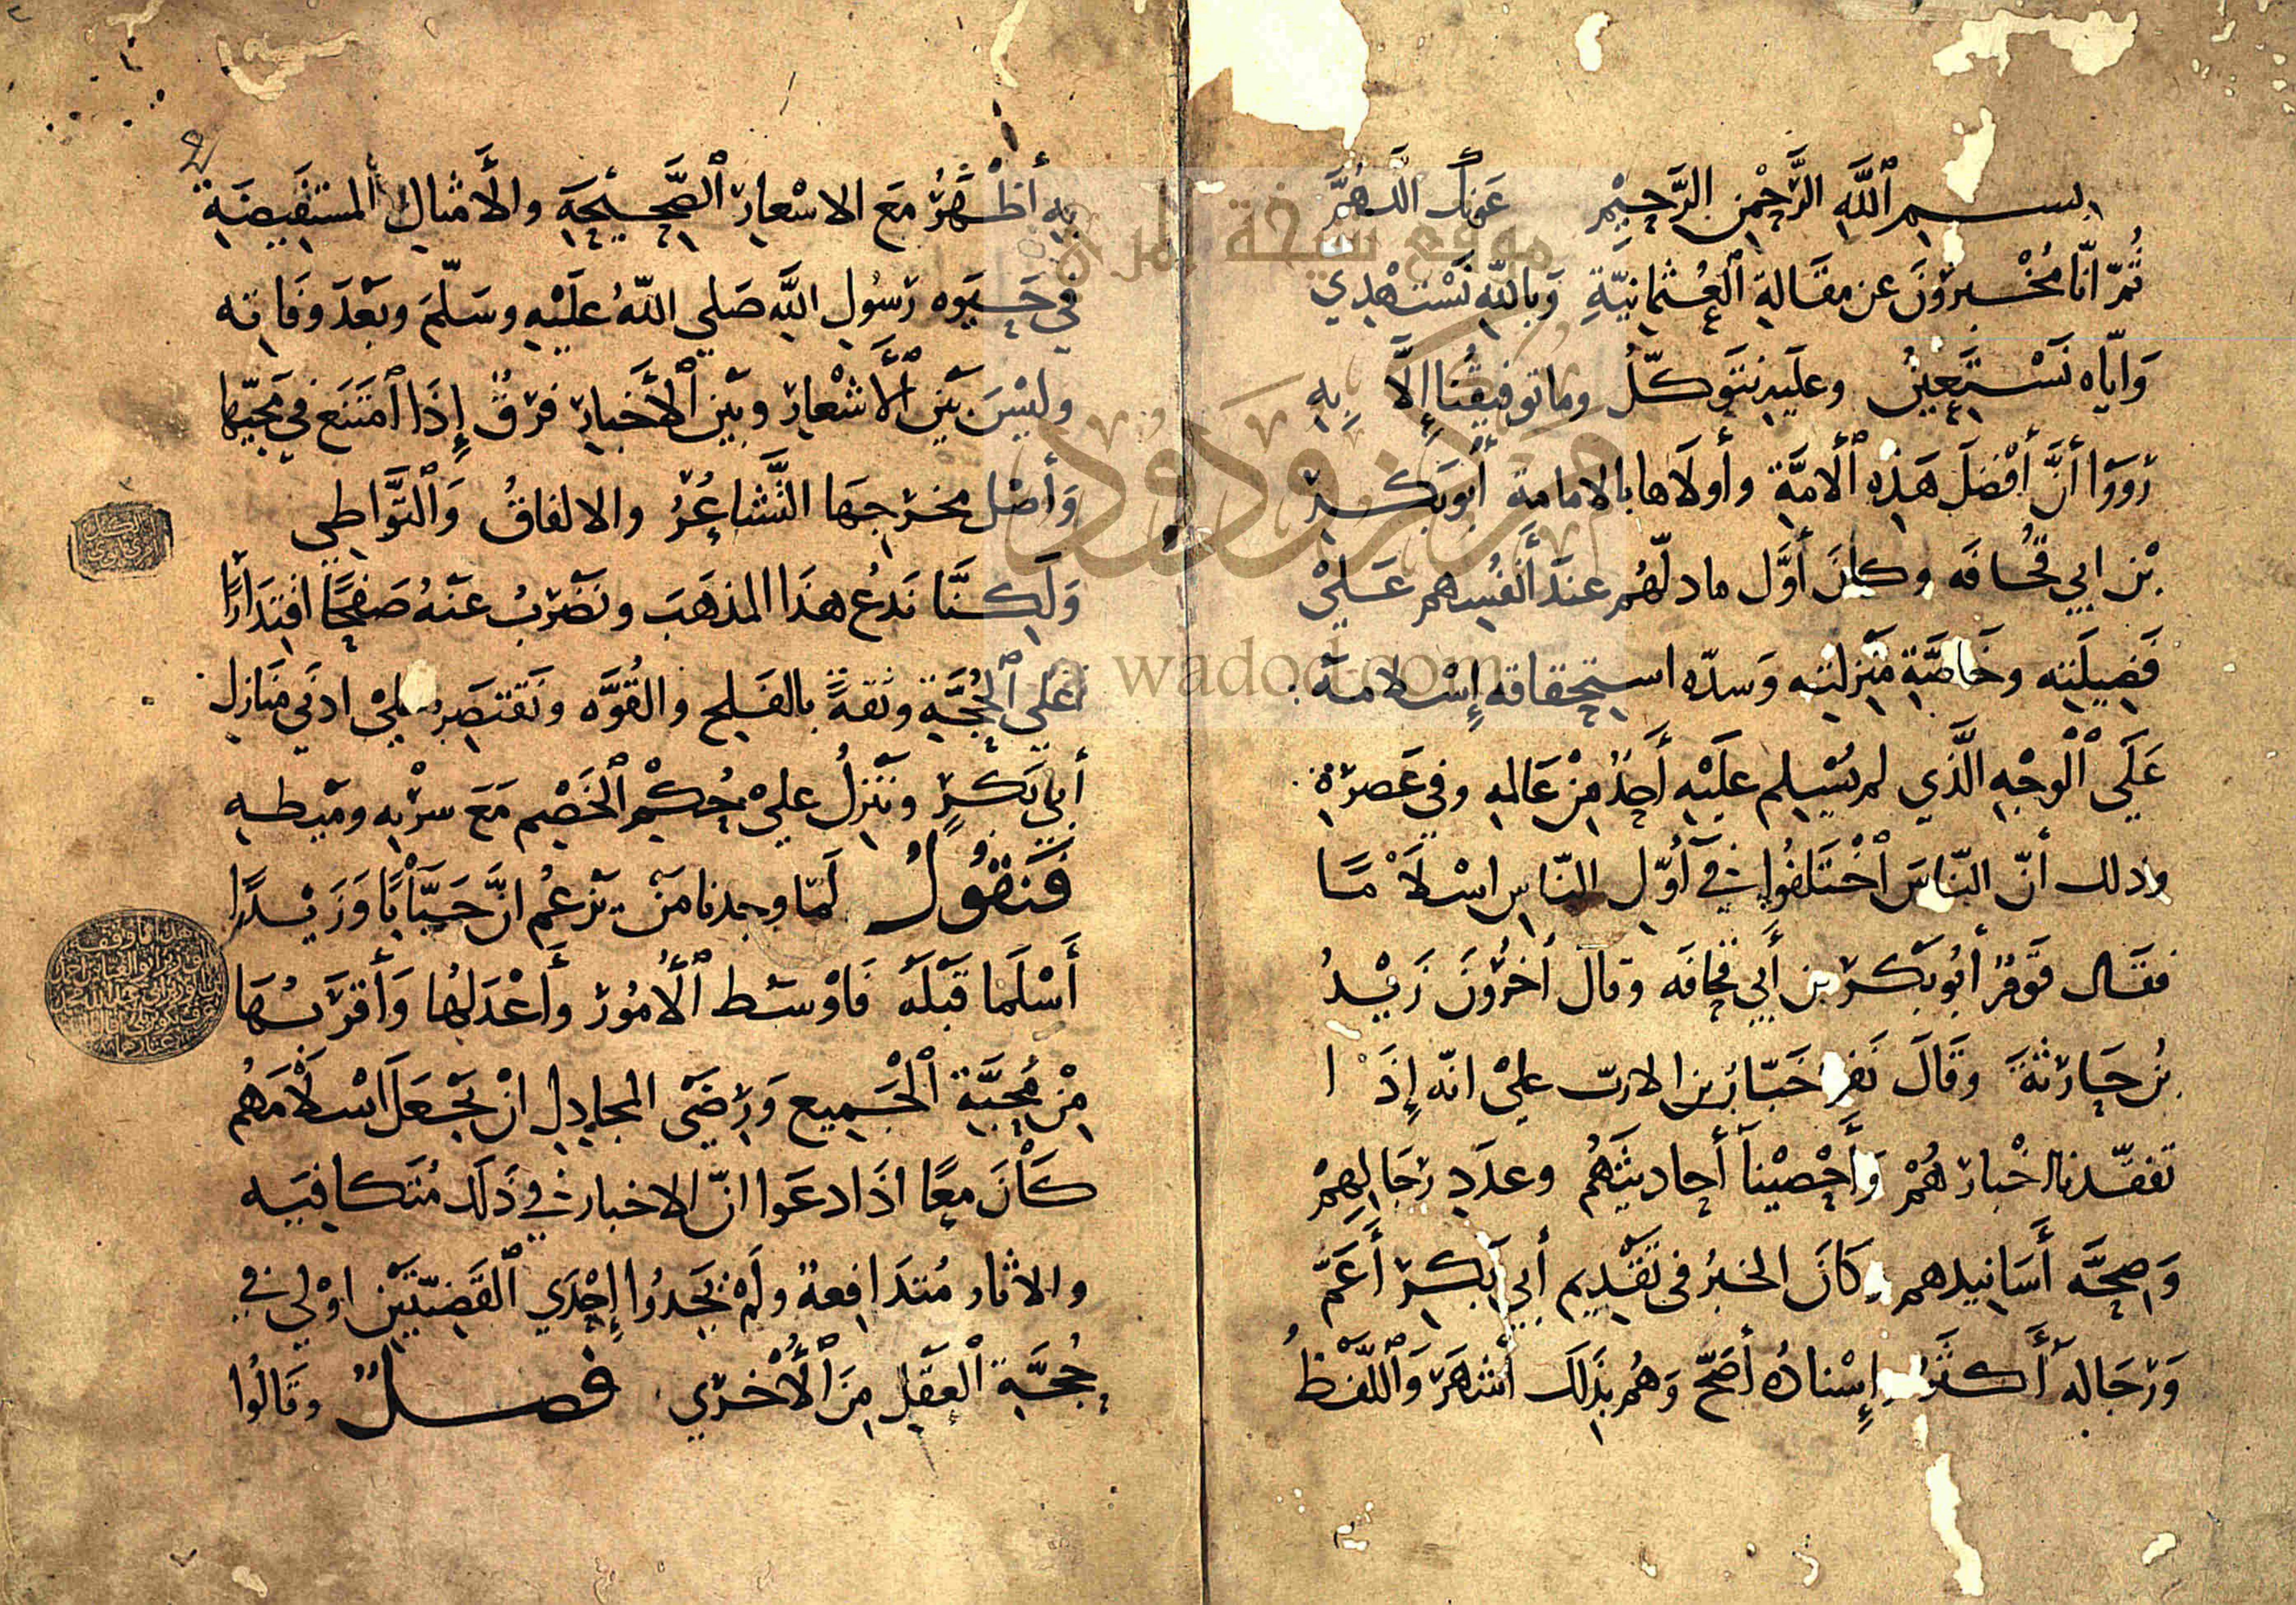 بسم اللَّهِ الرَّحْمنِ الرَّحيْمِ عَونكَ اللَّهُمَّ
ثُمّ انّا مُخْبِرُوْنَ عن مقَالةِ الْعُثمانِيّةِ وَباللّهِ نَسْتَهْدِي
وَايّاه نَسْتَعِينُ وعلَيهِ نتَوكّلُ وما توفيقُنا إلَّا بِهِ
زوَوَا أنَّ أفْضلَ هَذِهِ الْأمَّة وأولَاها بالامامة أبُوبَكرِ
بْن ابي قُحَافَه وكانَ أوَّل ما دلّهُم عندَ أنْفُسِهم عَليْ
فَضِيلَتِه وخَاصَّةِ مَنزلتِه وَسدّه استحقاقه إسْلامهُ
عَلَي الْوجْهِ الَّذي لم يُسْلم علَيْهِ أَحَدٌ مِنْ عَالمهِ وفي عَصرْهِ
وذلك أنّ النّاسَ اخْتَلفُوا في أوّلِ النّاسِ اسْلَامًا
فقَال قَوْمٌ أبُوبَكر بن أَبي قُحافَه وقالَ أخرُونَ زَيْدُ
بْن حَارثَةَ وقَالَ نَفر خَبّابُ بن الارتّ عليْ انّه إذَا
تفقّدنا اخْبارهُمْ وَأحْصيْنا أحاديثَهُم وعدَدِ رجَالِهِمْ
وَصِحَّه أَسَانيدهم كَانَ الخبرُ في تقْدِيم أبِي بَكرٍ أَعَمَّ
وَرجَاله أَكثرُ وإسْنادُه أصَحَّ وَهُو بذَلكَ أشهَرَ وَاللّفْظُ
بِهِ أظْهَرُ مَعَ الاشعارِ الصَّحيْحَةِ والأمثالِ المستَفِيضَةِ
في حَيَوه رَسُولِ اللَّه صَلي اللّهُ علَيْهِ وسَلّمَ وبَعْدَ وفَاتِه
وليْسَ بَيْنَ الْأَشْعارِ وبَيْن الْأخبارِ فرْقٌ إذَا امتَنَع في مَجيّها
وَأصْل مخرَجِهَا التَّشاعُرُ والاتفاقُ وَالتَّوَاطي
وَلَكِنَّا نَدعُ هذَا المذهَبَ ونَضْربُ عنْهُ صَفحًا اقتِدَارًا
عَلي الْحُجَّةِ وثقةً بالفَلج والقُوَّه ونَقتصِرُ عَليْ ادنَي منَازلِ
أبي بَكرٍ ونَنزلُ عليْ حُكْمِ الْخَصْمِ مَعَ سرْبِه وميطِه
فَنقُولُ لَمّا وجدنا مَنْ يزعُم انَّ خَبّابًا وَزَيْدًا
أسْلَما قَبْلَه فَاوْسَط الْأمُورِ وأَعْدَلهُا وَأقرَبهُا
مِنْ مُحَبَّةِ الْجَميعِ وَرِضَي المجادِلِ انْ نجْعَلَ اسْلَامَهُم
كَانَ معًا اذَا ادعَوا انّ الاخبار في ذَلَك مُتَكافيَه
والاثار مُتدَافِعةٌ ولَمْ نجِدُوا إحْدَي الْقَضِيّتَيْنِ اوْلي في
حُجَّةِ الْعَقْلِ مِنَ الْأُخْرَي فصل وقَالُوا
موقع شيخة المري
مركز ودود
wadod.com